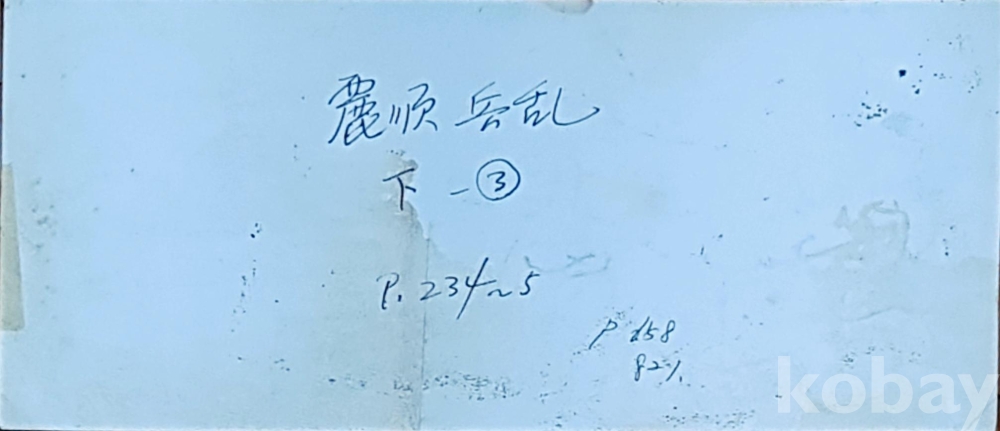 麗順 兵乱
下 - ③
P. 234~5
P 158
82%
kobay